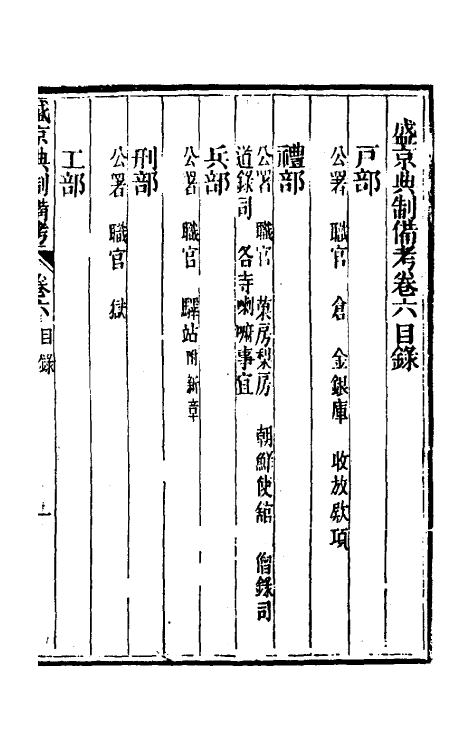 盛京典制備考卷六目錄
戸部
公署　職官　倉　金銀庫　收放欵項
禮部
公署　職官　菓房梨房　朝鮮使館　僧錄司
道錄司　各寺喇嘛事宜
兵部
公署　職官　驛站附新章
刑部
公署　職官　獄
工部
盛京典制備考　卷六目錄　一